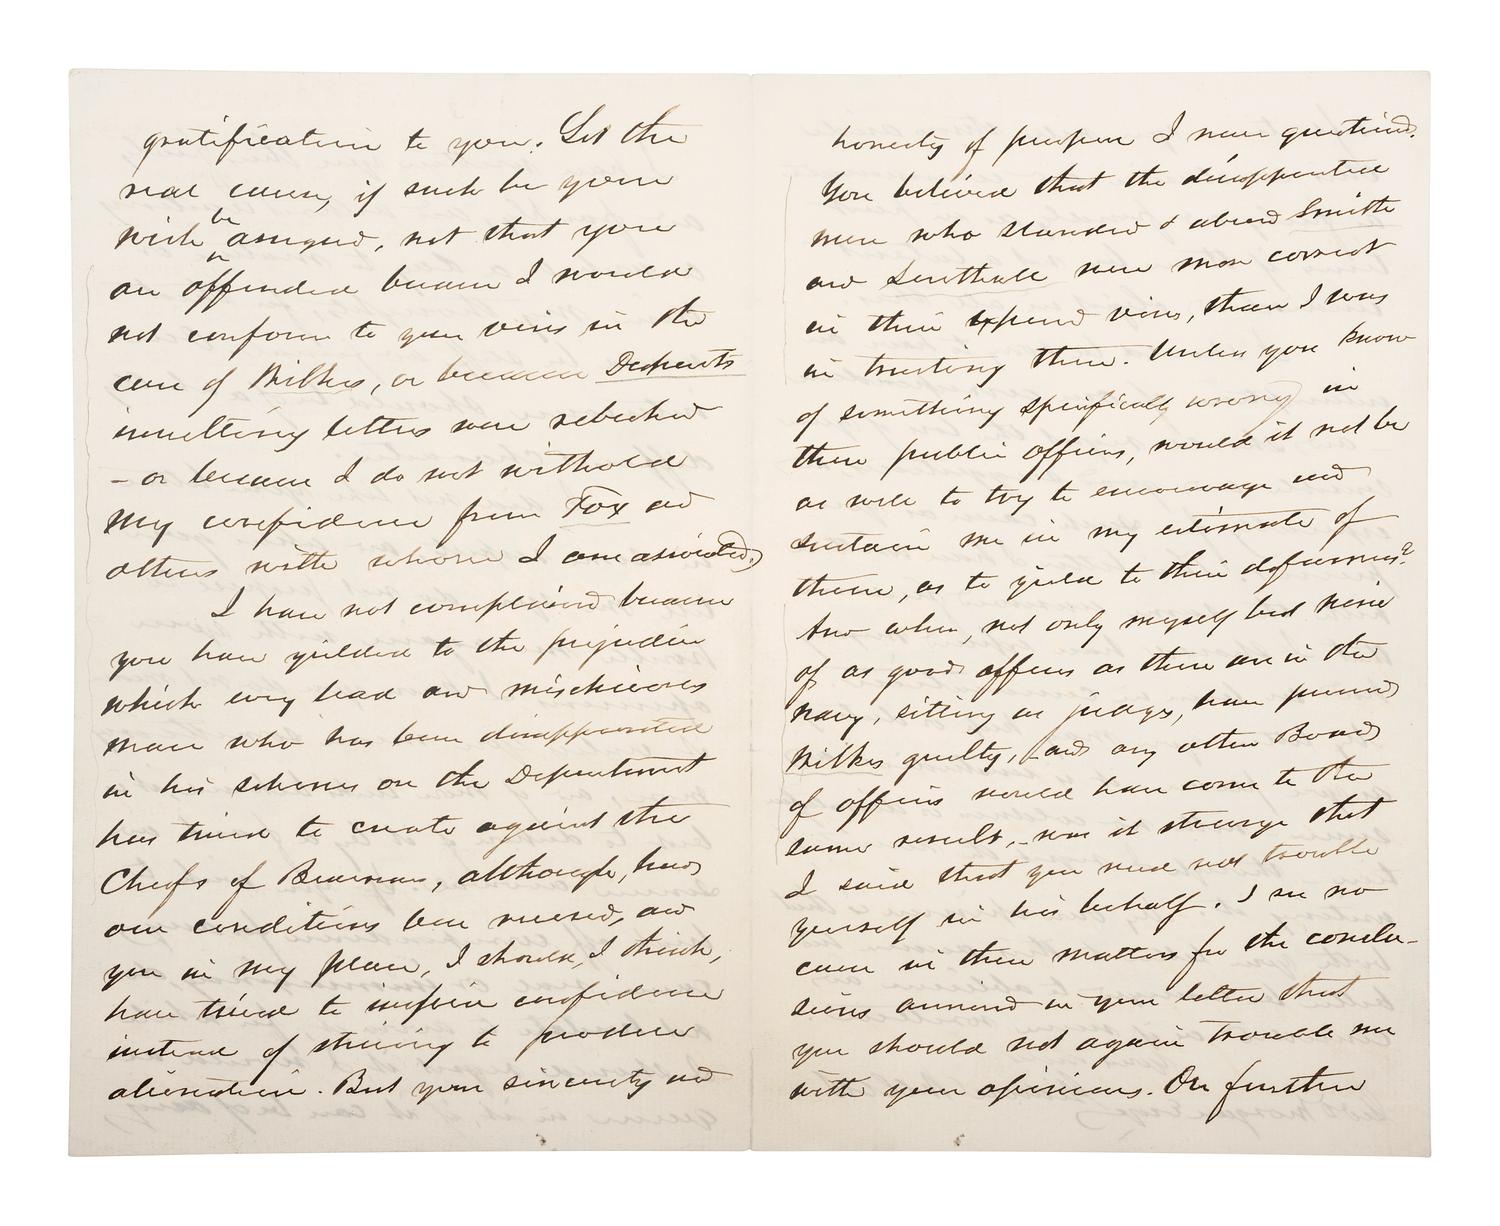 gratification to you. Let the
real cause, if such be your
wish be assigned, not that you
are offended because I would
not conform to your views in the
case of Wilkes, or because Duponts
insulting letters were rebuked
- or because I do not withold
my confidence from Fox and
others with whom I am associated.
I have not complained because
you have yielded to the prejudice
which every bad and mischievous
man who has been disappointed
in his schemes on the Department
has tried to create against the
Chiefs of Bureaus, although, had
our conditions been reversed, and
you in my place, I should, I think,
have tried to inspire confidence
instead of striving to produce
alienation. But your sincerity and
honesty of purpose I never questioned.
You believed that the disappointed
men who slandered & abused Smith
and Lenthall were more correct
in their views, than I was
in trusting them. Unless you know
of something specifically wrong in
these public officers, would it not be
as well to try to encourage and
sustain me in my estimate of
them, as to yield to their defamers?
And when, not only myself but nine
of as good officers as there are in the
navy, sitting as judges, have found
Wilkes guilty, and any other Board
of officers would have come to the
same result, - was it strange that
I said that you need not trouble
yourself in his behalf. I see no
cause in these matters for the conclu-
sions arrived in your letter that
you should not again trouble me
with your opinions. On further